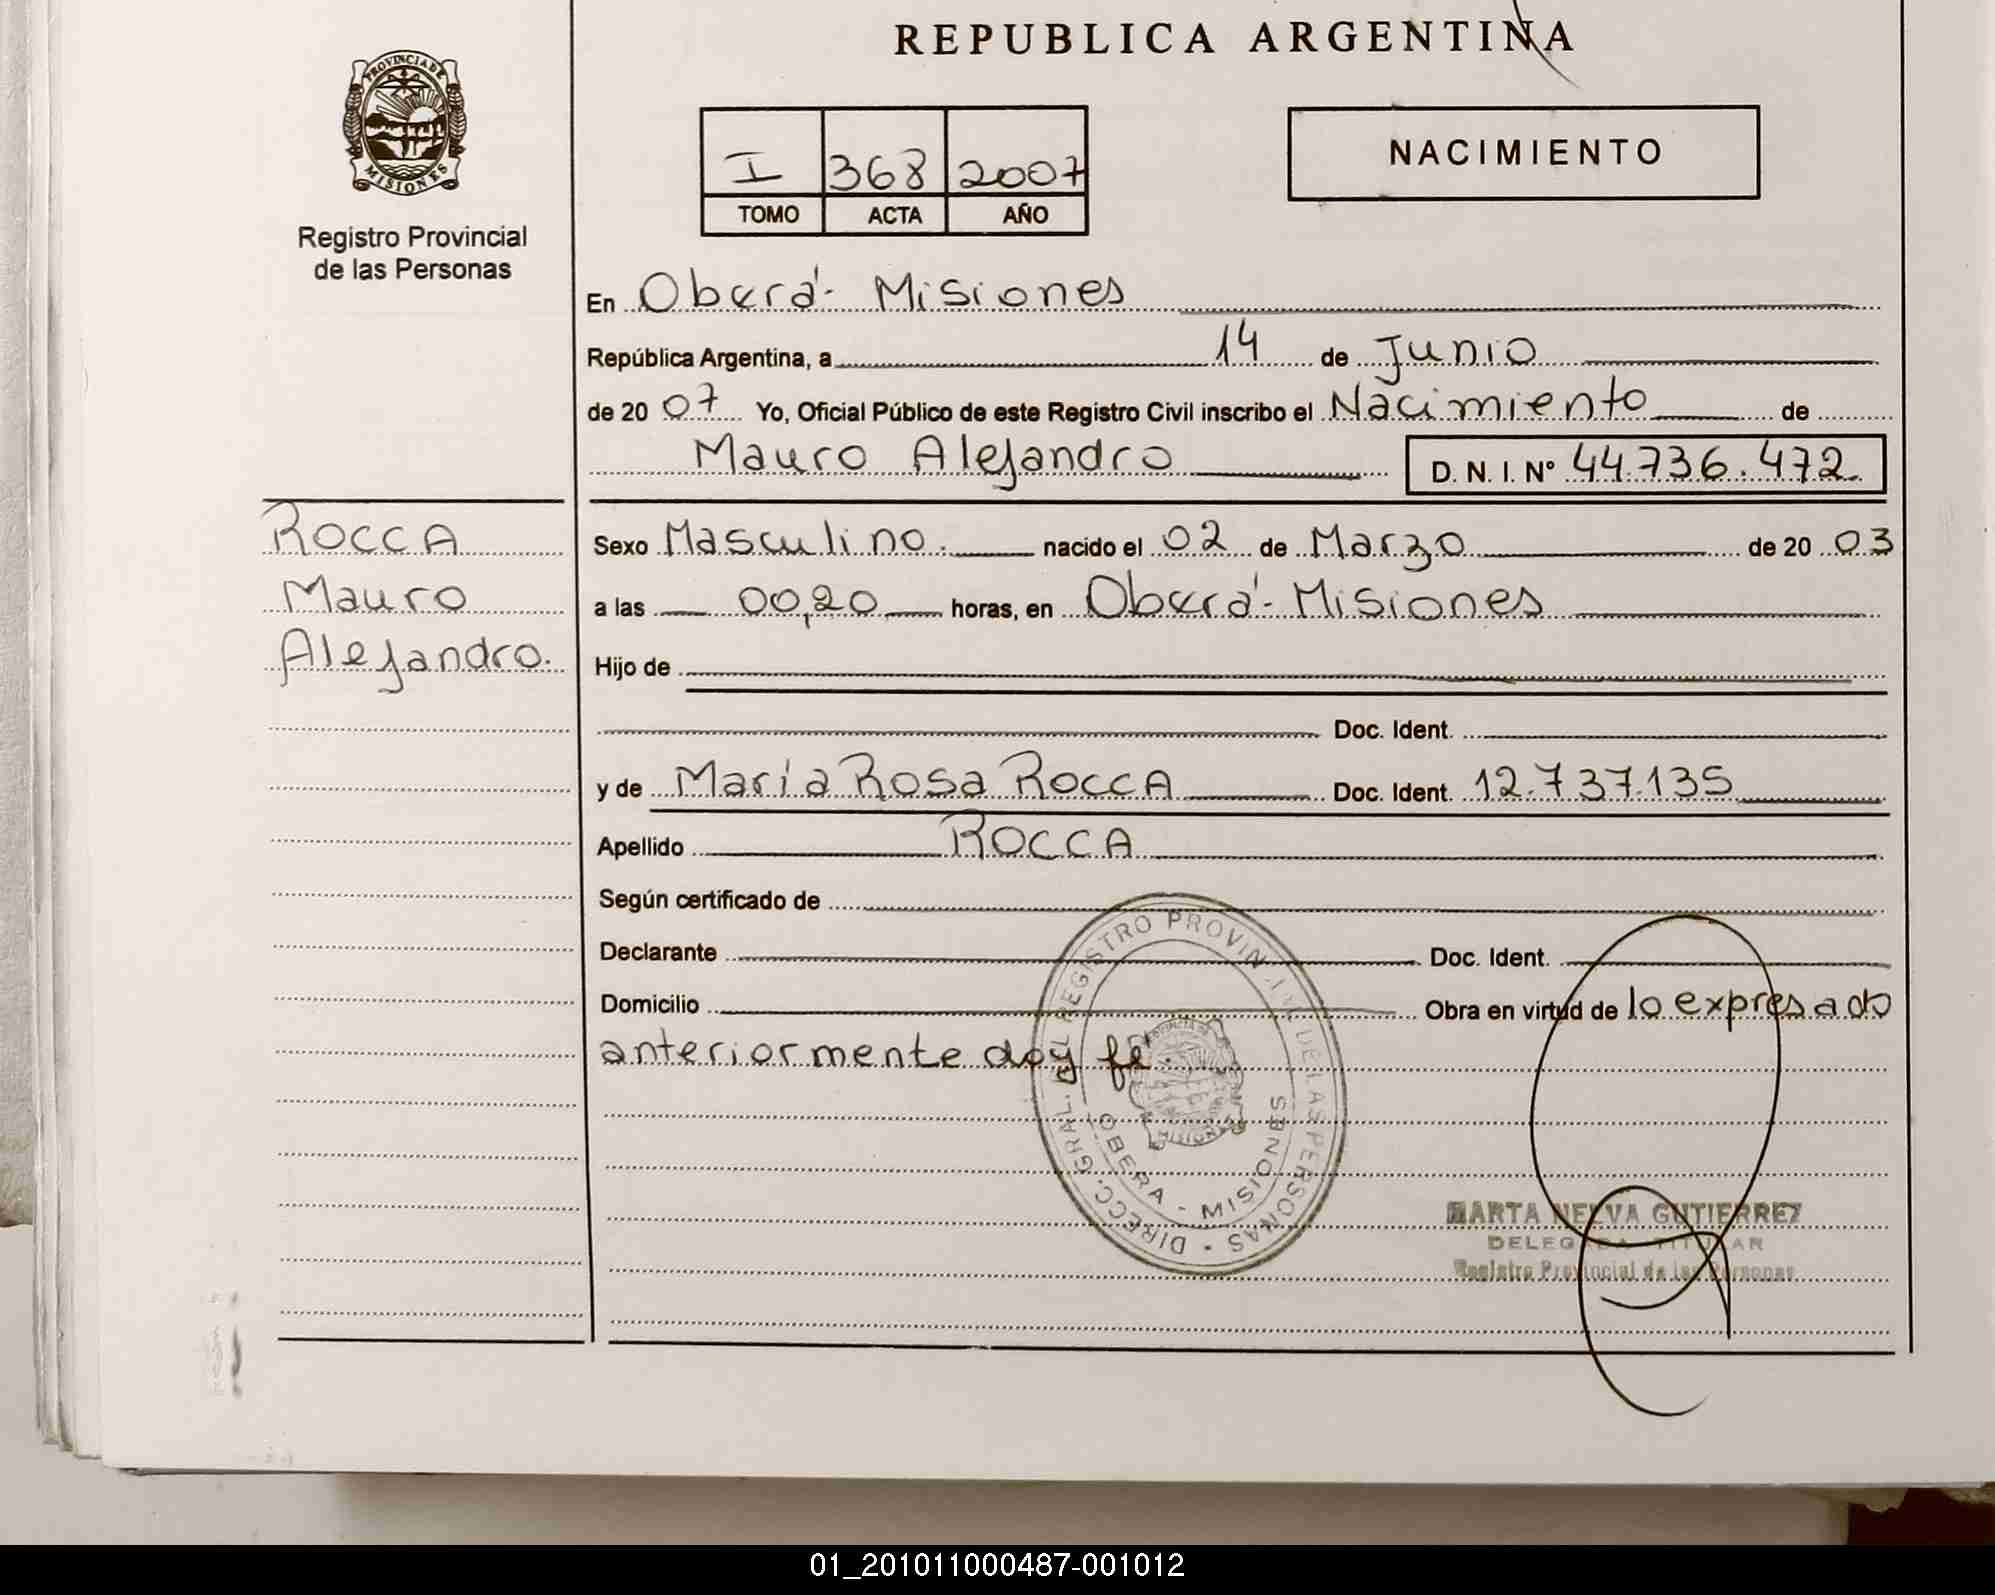 REPUBLICA ARGENTINA
PROVINCIA DE
MISIONES
Registro Provincial
de las Personas
I 368 2007
TOMO ACTA AÑO
NACIMIENTO
En Oberá - Misiones
República Argentina, a 14 de Junio
de 20 07 Yo, Oficial Público de este Registro Civil inscribo el Nacimiento de
Mauro Alejandro D. N. I. Nº 44.736.472.
ROCCA
Mauro
Alejandro.
Sexo Masculino. nacido el 02 de Marzo de 20 03
a las 00,20 horas, en Oberá - Misiones
Hijo de
Doc. Ident.
y de María Rosa ROCCA Doc. Ident. 12.737.135
Apellido ROCCA
Según certificado de
Declarante Doc. Ident.
Domicilio Obra en virtud de lo expresado
anteriormente doy fé.
DIRECC. GRAL. DEL REGISTRO PROVINCIAL DE LAS PERSONAS
OBERA - MISIONES
MARTA NELVA GUTIERREZ
DELEGADA TITULAR
Registro Provincial de las Personas
01_201011000487-001012